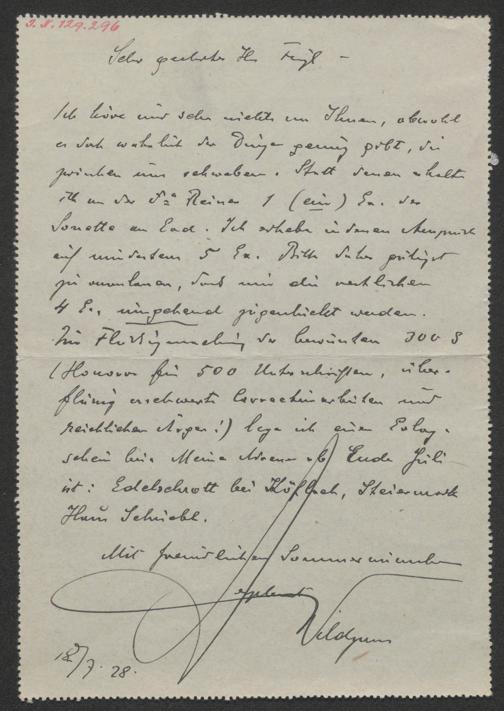 J. N. 129.296
Sehr geehrter Herr Feigl –
Ich höre und sehe nichts von Ihnen, obwohl
es doch wahrlich der Dinge genug gibt, die
zwischen uns schweben. Statt dessen erhalte
ich von der Fa Reiner 1 (ein) Ex. der
Sonette an Ead. Ich erhebe indessen Anspruch
auf mindestens 5 Ex. Bitte daher gütigst
zu veranlassen, dass mir die restlichen
4 Ex. umgehend zugeschickt werden.
Zur Flüssigmachung der bewussten 300 S
(Honorar für 500 Unterschriften, über-
flüssig erschwerte Correcturarbeiten und
reichlichen Ärger!) lege ich einen Erlag-
schein bei. Meine Adresse ab Ende Juli
ist: Edelschrott bei Köflach, Steiermark
Haus Schriebl.
Mit freundlichen Sommerwünschen
ergebenst
Wildgans
18/7. 28.